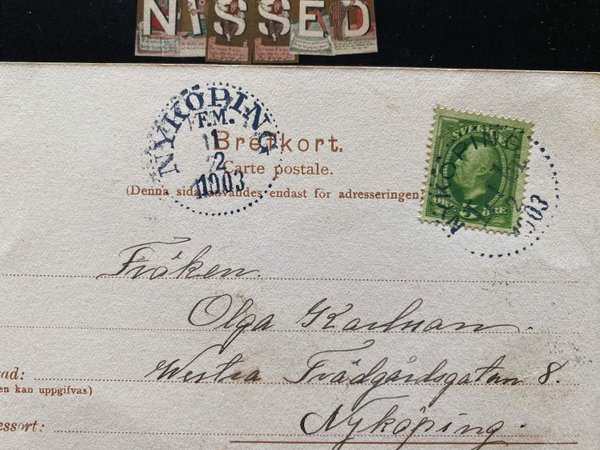 NISSED
NYKÖPING
F.M.
11
2
1903
Brefkort.
Carte postale.
(Denna sida användes endast för adresseringen
SVERIGE
NYKÖPING
2
1903
Fröken
Olga Karlman.
Westra Trädgårdsgatan 8.
ad:
en kan uppgifvas)
Nyköping.
essort: